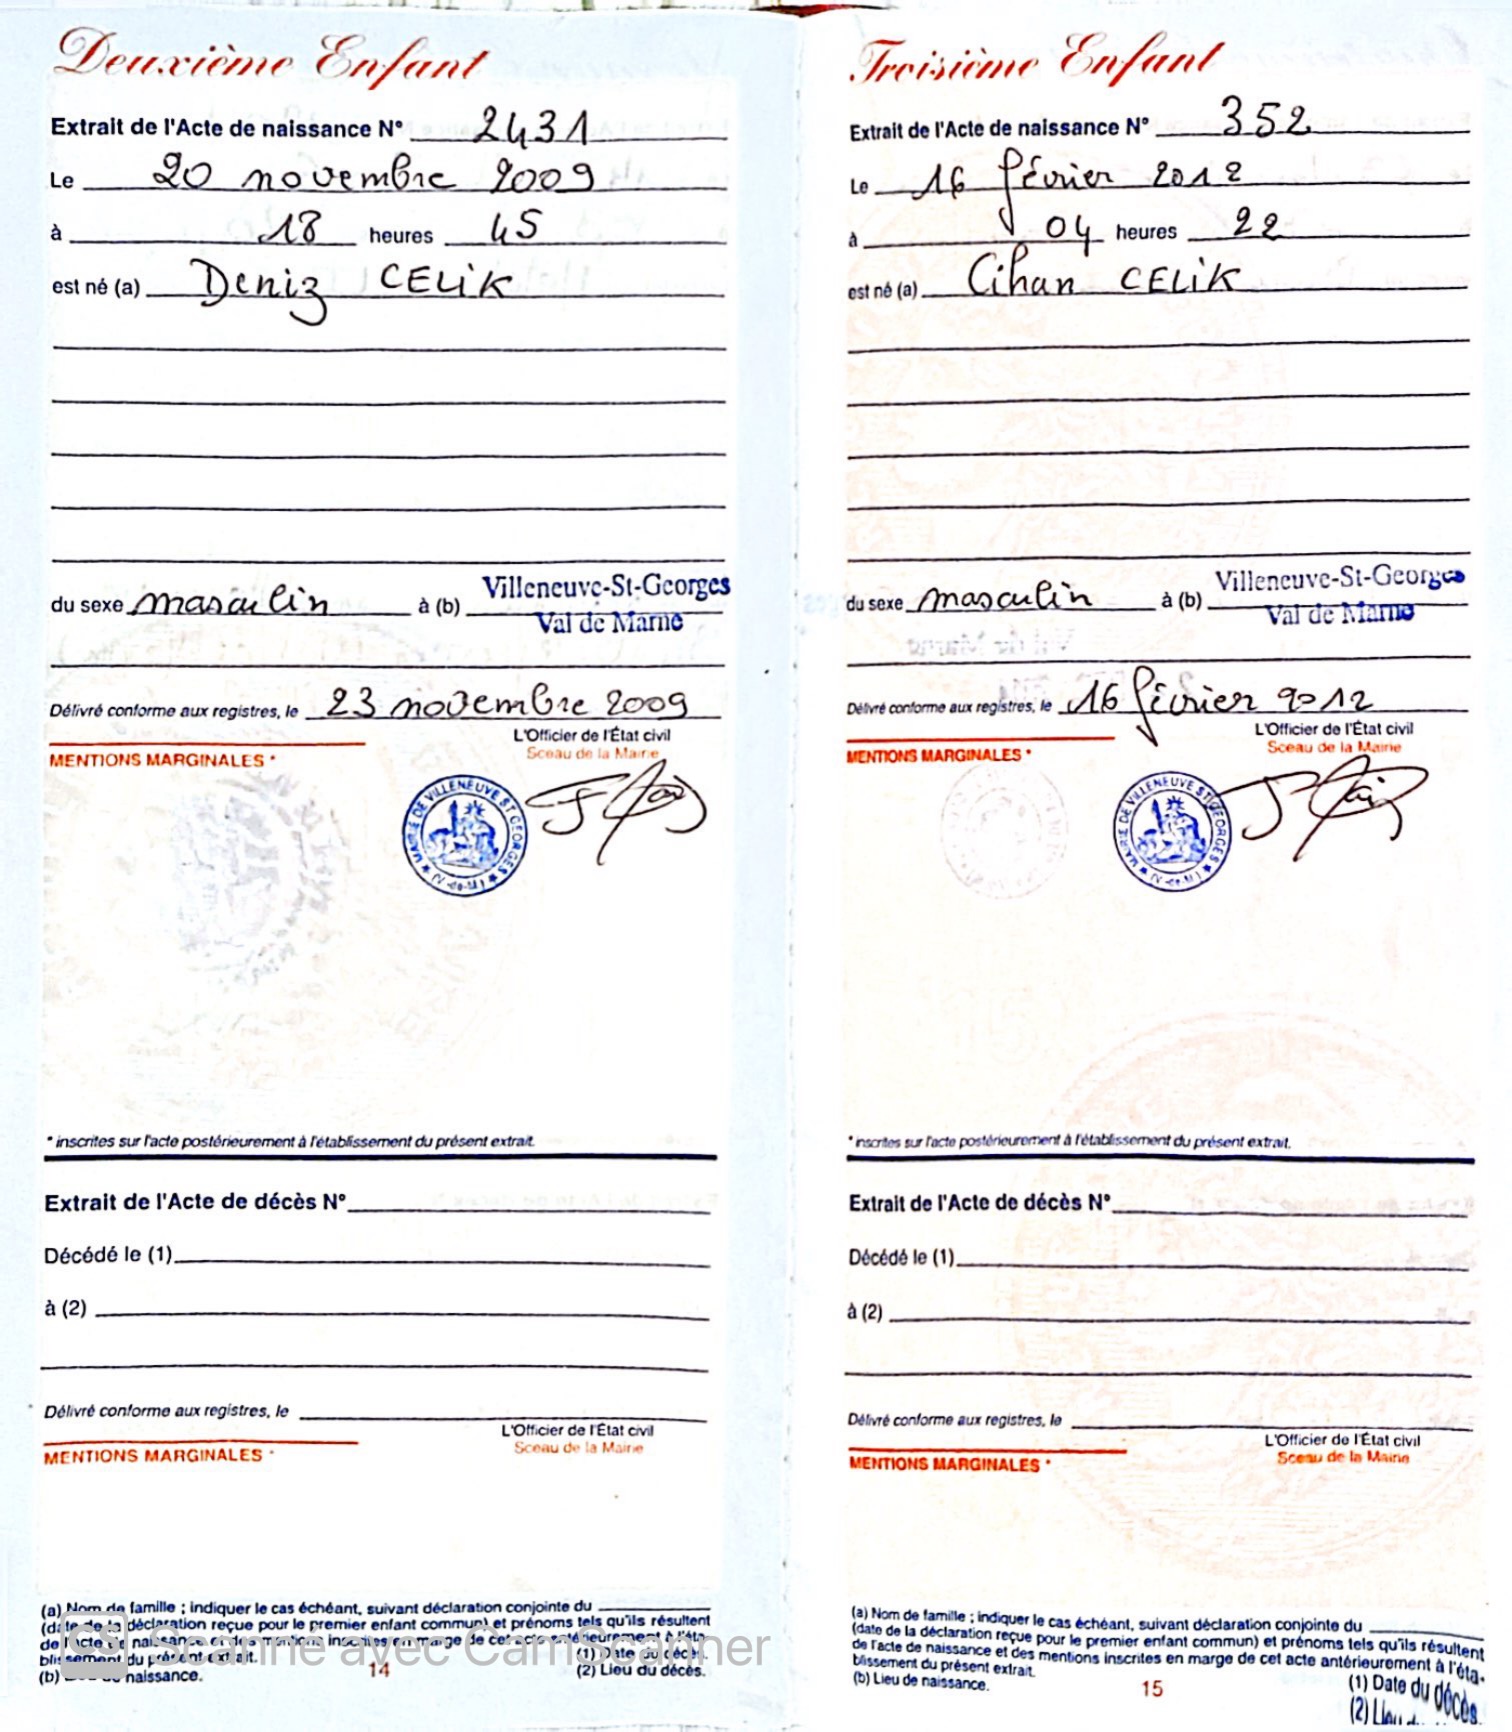 Deuxième Enfant
Extrait de l'Acte de naissance N° 2431
Le 20 novembre 2009
à 18 heures 45
est né (a) Deniz CELIK
du sexe masculin à (b) Villeneuve-St-Georges
Val de Marne
Délivré conforme aux registres, le 23 novembre 2009
L'Officier de l'État civil
Sceau de la Mairie
MENTIONS MARGINALES *
MAIRIE DE VILLENEUVE ST GEORGES
(V-de-M)
* inscrites sur l'acte postérieurement à l'établissement du présent extrait.
Extrait de l'Acte de décès N°
Décédé le (1)
à (2)
Délivré conforme aux registres, le
L'Officier de l'État civil
Sceau de la Mairie
MENTIONS MARGINALES *
(a) Nom de famille ; indiquer le cas échéant, suivant déclaration conjointe du
(date de la déclaration reçue pour le premier enfant commun) et prénoms tels qu'ils résultent
de l'acte de naissance et des mentions inscrites en marge de cet acte antérieurement à l'éta-
blissement du présent extrait. (1) Date du décès.
(b) Lieu de naissance. (2) Lieu du décès.
14
CS Scanné avec CamScanner
Troisième Enfant
Extrait de l'Acte de naissance N° 352
Le 16 février 2012
à 04 heures 22
est né (a) Cihan CELIK
du sexe masculin à (b) Villeneuve-St-Georges
Val de Marne
Délivré conforme aux registres, le 16 février 2012
L'Officier de l'État civil
Sceau de la Mairie
MENTIONS MARGINALES *
MAIRIE DE VILLENEUVE ST GEORGES
(V-de-M)
* inscrites sur l'acte postérieurement à l'établissement du présent extrait.
Extrait de l'Acte de décès N°
Décédé le (1)
à (2)
Délivré conforme aux registres, le
L'Officier de l'État civil
Sceau de la Mairie
MENTIONS MARGINALES *
(a) Nom de famille ; indiquer le cas échéant, suivant déclaration conjointe du
(date de la déclaration reçue pour le premier enfant commun) et prénoms tels qu'ils résultent
de l'acte de naissance et des mentions inscrites en marge de cet acte antérieurement à l'éta-
blissement du présent extrait.
(b) Lieu de naissance.
(1) Date du décès.
(2)
15